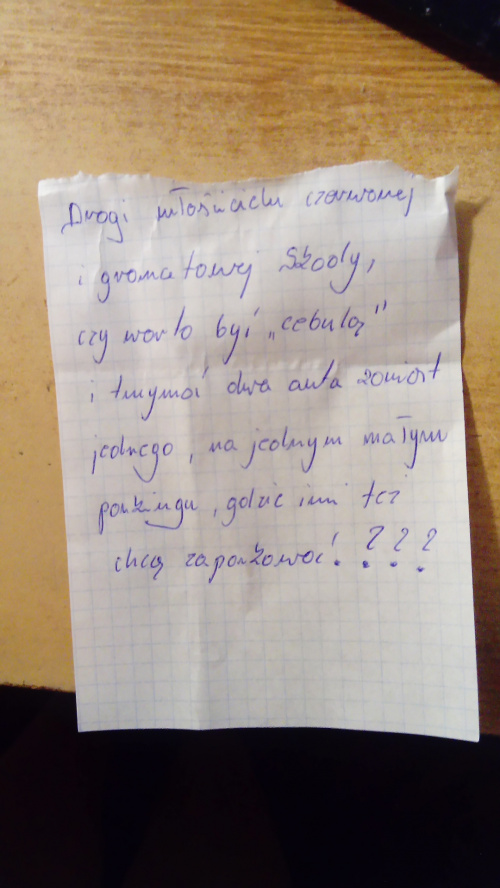 Drogi miłośniczku czerwonej
i granatowej Skody,
czy warto być „cebulą”
i trzymać dwa auta zamiast
jednego, na jednym małym
parkingu, gdzie inni też
chcą zaparkować! ? ? ?